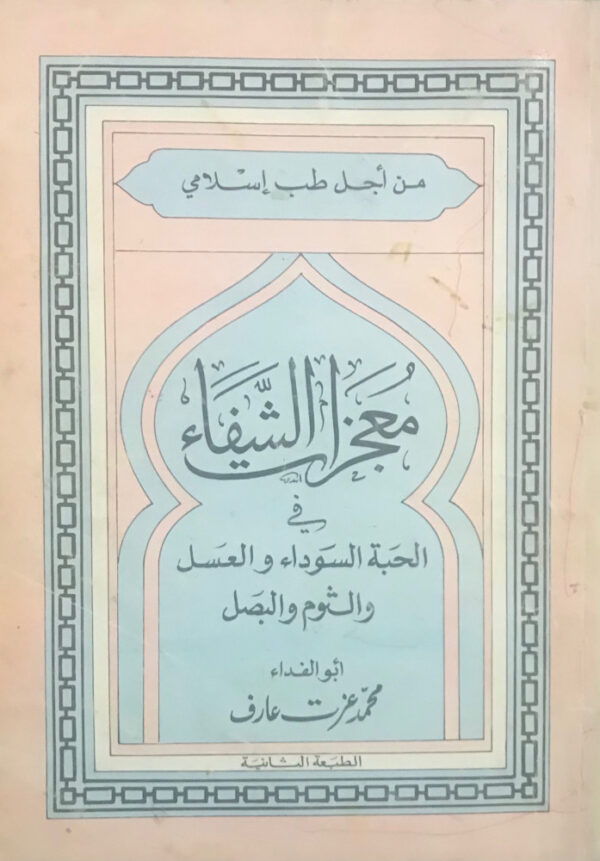 من أجل طب إسلامي
مُعجزات الشِّفَاء
في
الحبة السوداء والعسل
والثوم والبصل
أبو الفداء
محمّد عزت عارف
الطبعة الثانية